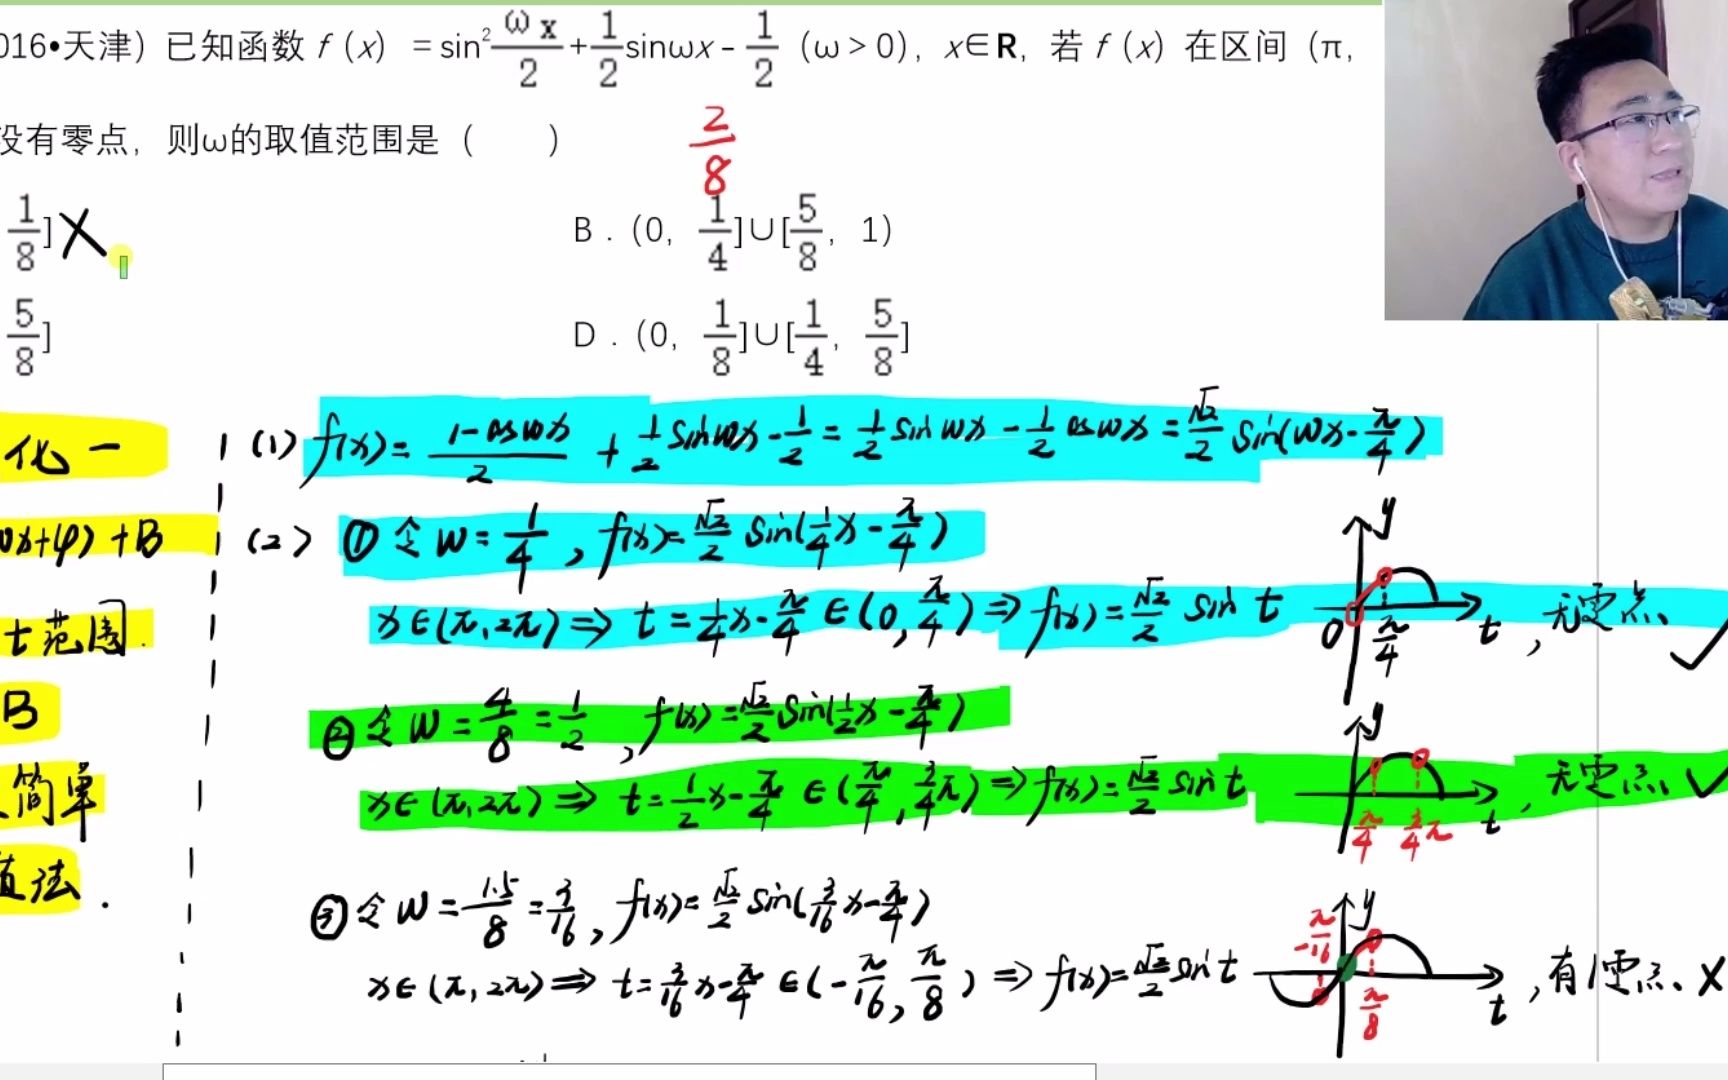 016•天津）已知函数 f（x）=sin²ωx/2+1/2sinωx-1/2（ω>0），x∈R，若 f（x）在区间（π，
没有零点，则ω的取值范围是（　　）
2/8
1/8]X
B．(0，1/4]∪[5/8，1)
5/8]
D．(0，1/8]∪[1/4，5/8]
化一
(1) f(x)=(1-cosωx)/2+1/2sinωx-1/2=1/2sinωx-1/2cosωx=√2/2sin(ωx-π/4)
ωx+φ)+B
(2) ①令ω=1/4，f(x)=√2/2sin(1/4x-π/4)
t范围.
x∈(π,2π)⇒t=1/4x-π/4∈(0,π/4)⇒f(x)=√2/2 sin t
y
0 π/4 t ，无零点、✓
B
②令ω=4/8=1/2，f(x)=√2/2sin(1/2x-π/4)
简单
x∈(π,2π)⇒t=1/2x-π/4∈(π/4,3/4π)⇒f(x)=√2/2sin t
y
π/4 3/4π t ，无零点、✓
值法.
③令ω=1.5/8=3/16，f(x)=√2/2sin(3/16x-π/4)
x∈(π,2π)⇒t=3/16x-π/4∈(-π/16,π/8)⇒f(x)=√2/2sin t
y
-π/16 π/8 t ，有1零点、X